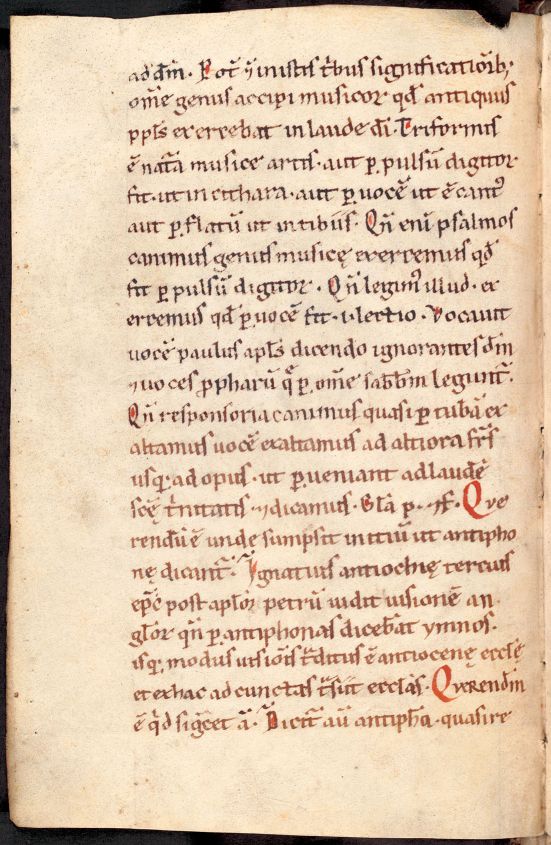 ad dn̄m. Pot̄ ⁊ in istis tr̄bus significatiōib;
om̄e genus accipi musicor̄ qd̄ antiquus
ppl̄s exercebat in laude dī. Triformis
ē nat̄a musicę artis. aut p̱ pulsū digitor̄
fit. ut in cithara. aut p̱ vocē ut ē cant᷒
aut p̱ flatū ut in tibiis. Qn̄ eni psalmos
canimus genus musicę exercemus qd̄
fit p̱ pulsū digitor̄. Qn̄ legim᷒ illud ex
ercemus qd̄ p̱ vocē fit. i. lectio. Vocauit
vocē paulus apl̄s dicendo ignorantes dn̄m
⁊ uoces p̱pharū q̄ p̱ om̄e sabb̄m legunt᷑.
Qn̄ responsoria canimus quasi p̱ tubā ex
altamus vocē exaltamus ad altiora fr̄s
usq; ad opus. ut p̱ueniant ad laudē
scę̄ tr̄nitatis ⁊ dicamus. Gl̄a p. ⁊ f. Que
rendū ē unde sumpsit initiū ut antipho
nę dicant᷑. Ignatius antiochię tercius
ep̄c post apl̄or petrū uidit uisionē an
gl̄or qn̄ p̱ antiphonas diceb̄at ymnos.
isq; modus uisiōis tr̄ditus ē antiocenę ecclę̄
et ex hac ad cunctas tr̄siit eccl̄as. Querendū
ē qd̄ sig̅cet a᷑. Dicit᷑ aū antiph̄a. quasi re